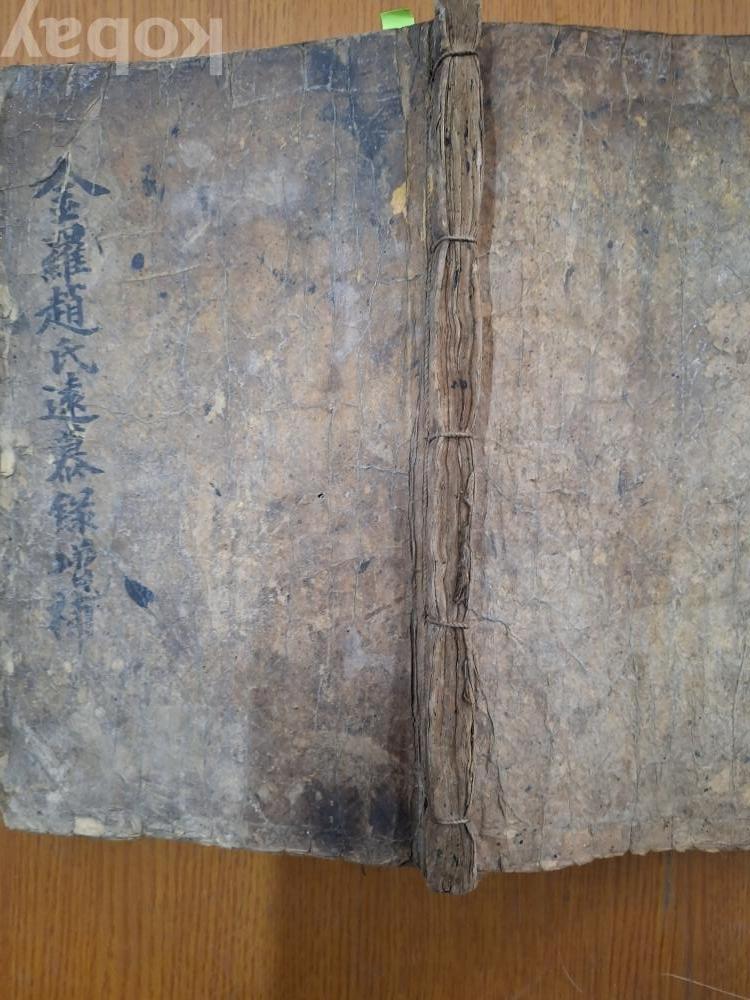 kobay
金羅趙氏遠慕錄增補